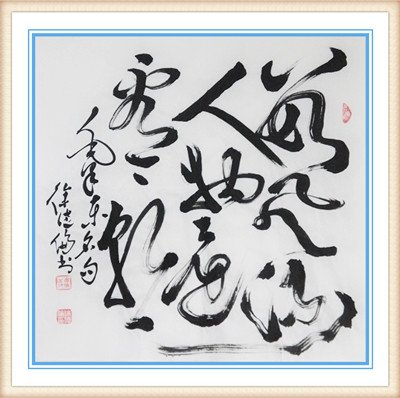 数风流
人物还
看今朝
毛泽东名句
徐书